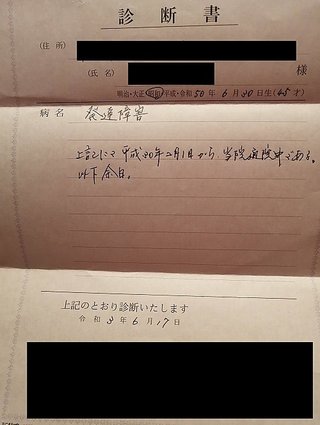 診断書
(住所)
(氏名) 様
明治・大正・昭和・平成・令和50年6月20日生(45才)
病名 発達障害
上記にて平成20年2月1日から、当院通院中である。
以下余白。
上記のとおり診断いたします
令和3年6月17日